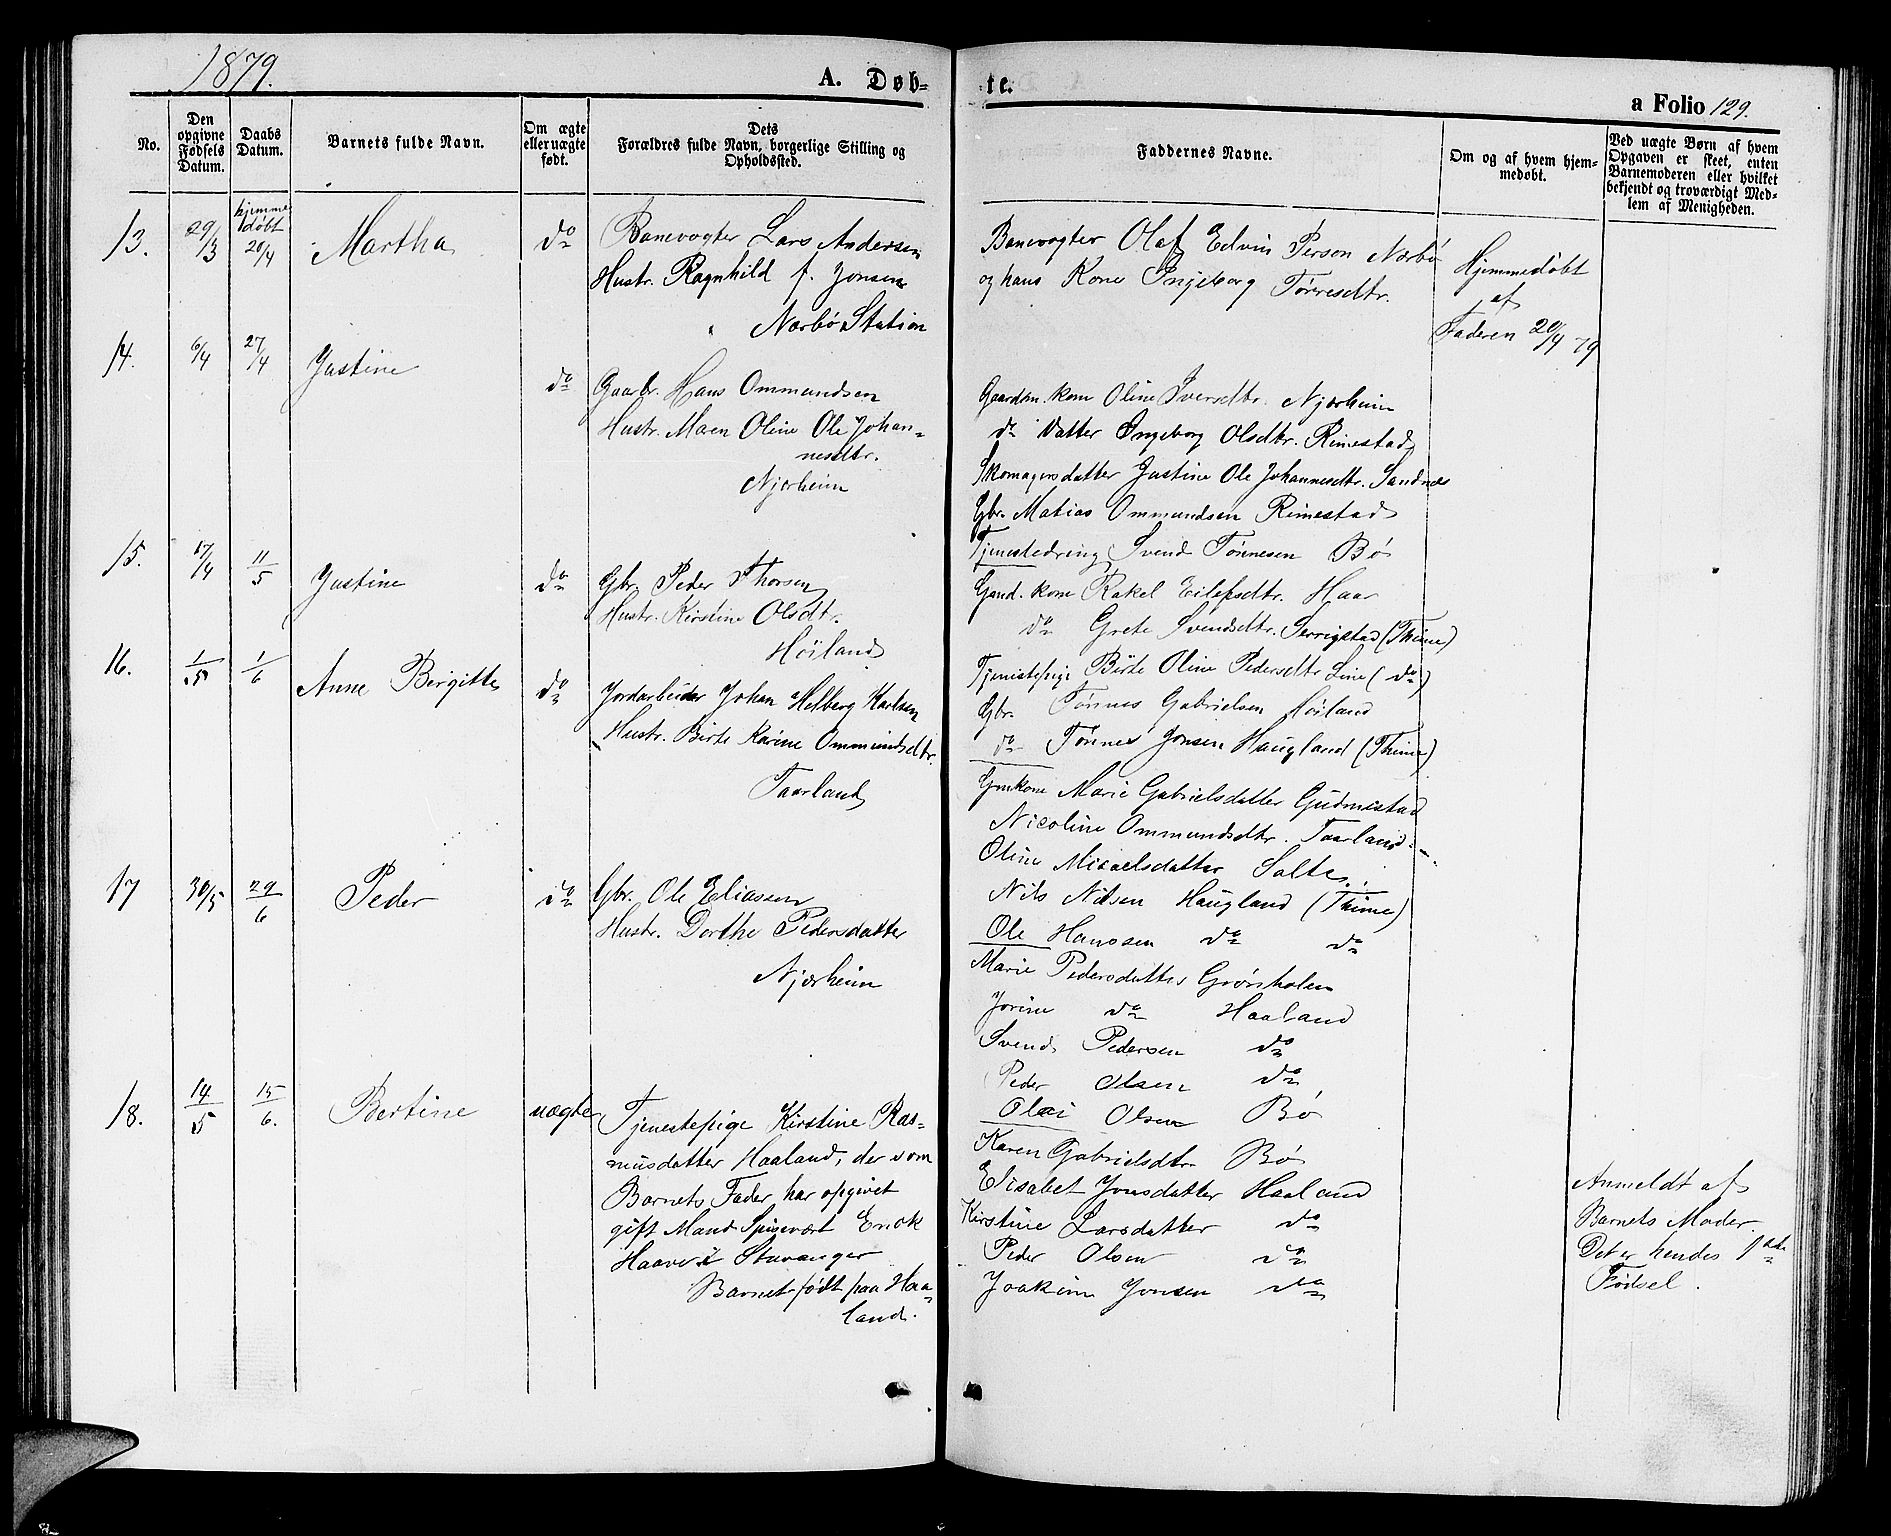 1879.
A. Døb-
te.
a Folio 129.
No.
Den opgivne Fødsels Datum.
Daabs Datum.
Barnets fulde Navn.
Om ægte eller uægte født.
Dets Forældres fulde Navn, borgerlige Stilling og Opholdssted.
Faddernes Navne.
Om og af hvem hjemmedøbt.
Ved uægte Børn af hvem Opgaven er skeet, enten Barnemoderen eller hvilket bekjendt og troværdigt Medlem af Menigheden.
13. 29/3 hjemmedøbt 20/4 Martha do
Banevogter Lars Andersen
Hustr. Ragnhild f. Jonsen
Nærbø Station
Banevogter Olaf Edvin Person Nærbø
og hans Kone Ingeborg Tørresdtr.
Hjemmedøbt
af
Faderen 20/4 79
14. 6/4 27/4 Justine do
Gaarbr. Hans Ommundsen
Hustr. Maen Oline Ole Johan-
nesdtr.
Njærheim
Gaardm. kone Oline Iversdtr. Njærheim
do Datter Ingeborg Olsdtr. Rimestad
Skomagersdatter Justine Ole Johannesdtr. Sandnes
Gbr. Matias Ommundsen Rimestad
Tjenestedreng Svend Tønnesen Bø
15. 17/4 11/5 Justine do
Gbr. Peder Thorsen
Hustr. Kirstine Olsdtr.
Høiland
Gaud. kone Rakel Eilefsdtr. Haar
do Grete Svendsdtr. Serrigstad (Thime)
Tjenestepige Birte Oline Pedersdtr Line (do)
Gbr. Tønnes Gabrielsen Høiland
do Tønnes Jonsen Haugland (Thime)
16. 1/5 1/6 Anne Birgitte do
Jordarbeider Johan Helberg Karlsen
Hustr. Birte Karine Ommundsdtr.
Taarland
Gmkone Marie Gabrielsdatter Gudmestad
Nicoline Ommundsdtr. Taarland
Oline Micaelsdatter Salte
Nils Nilsen Haugland (Thime)
Ole Hanssen do do
17 30/5 29/6 Peder do
Gbr. Ole Eliassen
Hustr. Dorthe Pedersdatter
Njærheim
Marie Pedersdatter Grørsholen
Jorine do Haaland
Svend Pedersen do
Peder Olsen do
Olai Olsen Bø
18. 14/5 15/6. Bertine uægte
Tjenestepige Kirstine Ras-
musdatter Haaland, der som
Barnets Fader har opgivet
gift Mand Spisevært Enok
Haaver i Stavanger
Barnet født paa Haa-
land.
Karen Gabrielsdtr. Bø
Elisabet Jonsdatter Haaland
Kirstine Larsdatter do
Peder Olsen do
Joakim Jonsen do
Anmeldt af
Barnets Moder.
Det er hendes 1ste
Fødsel.